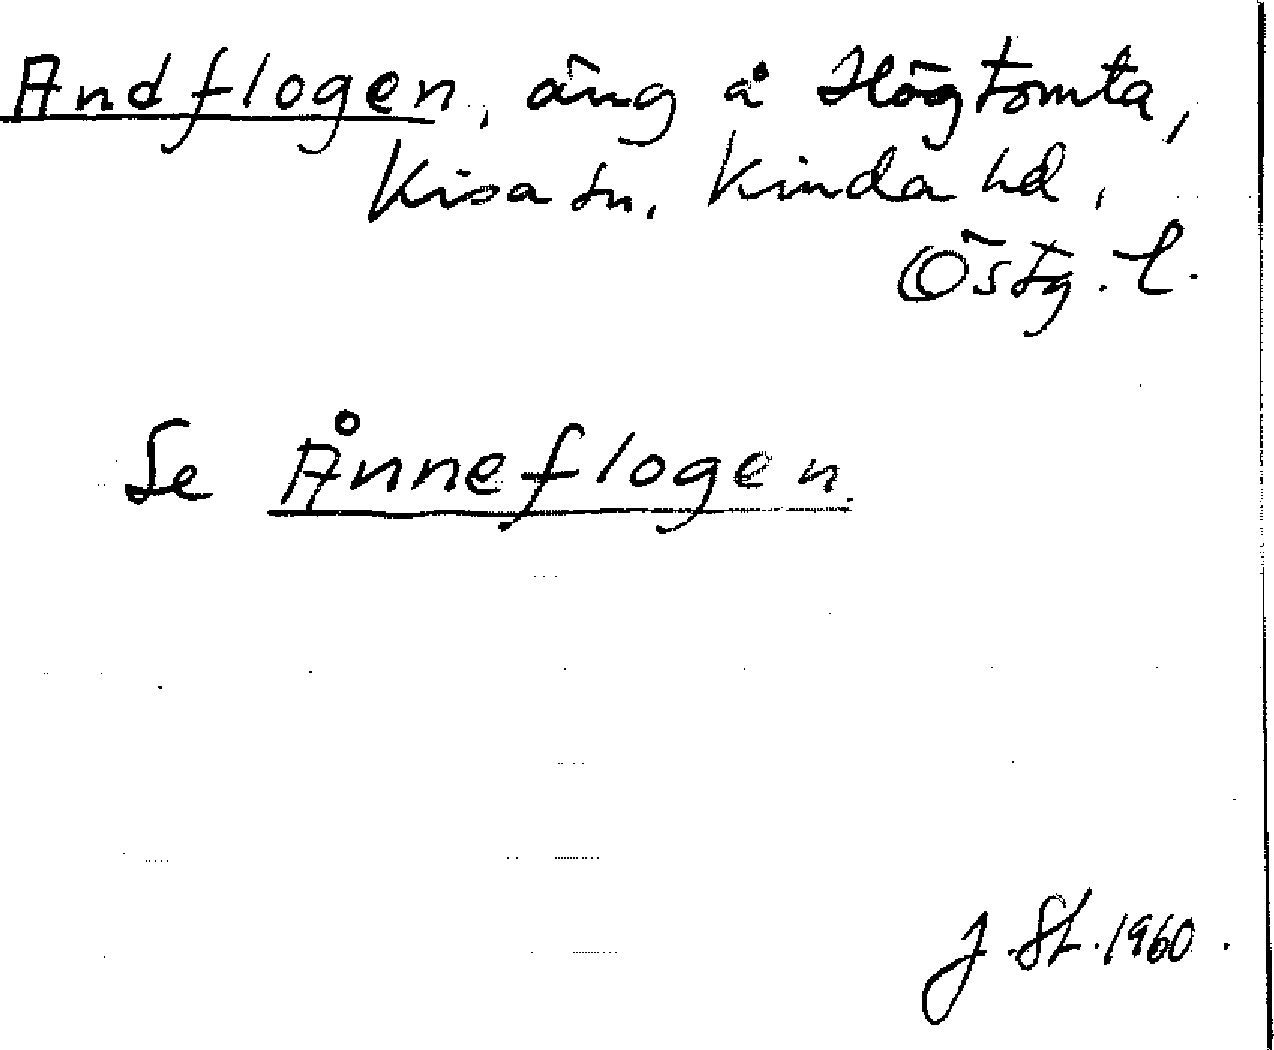 Andflogen, äng å Högtomta,
Kisa sn, Kinda hd,
Östg. l.
Se Ånneflogen.
J. St. 1960.